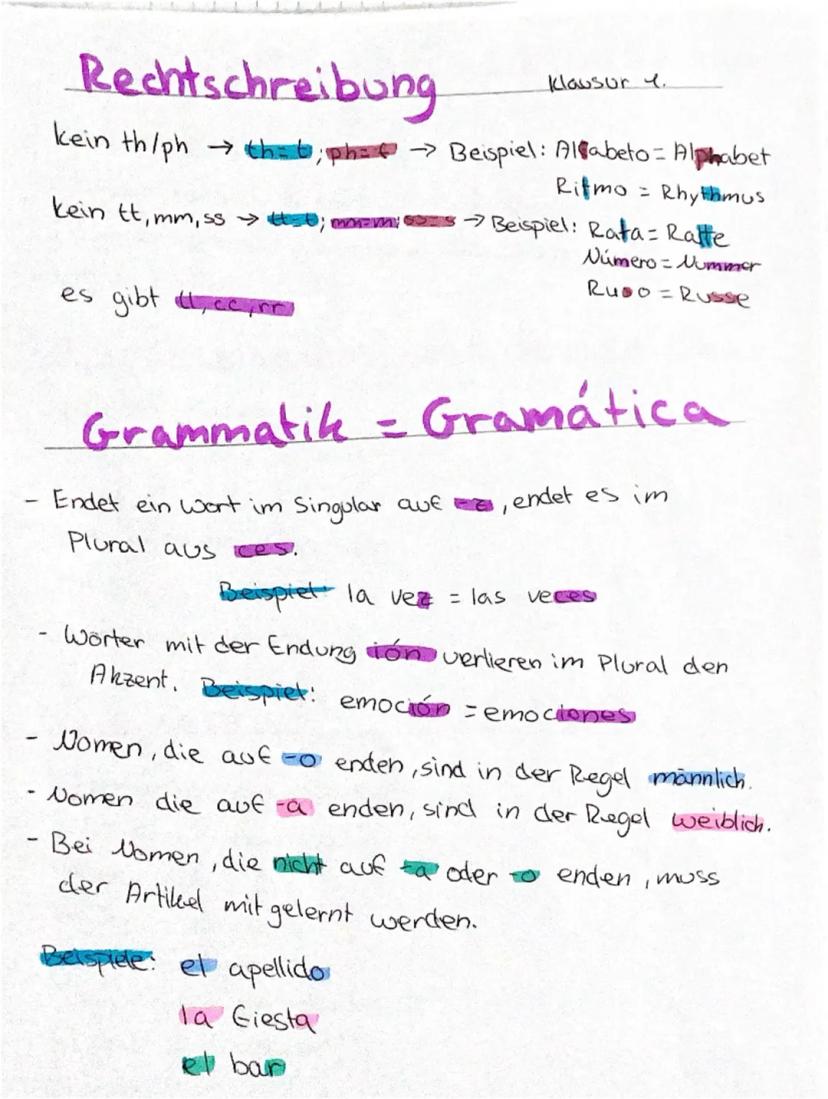 Rechtschreibung Klausur 1.
kein th/ph → th=t; ph=f → Beispiel: Alfabeto = Alphabet
Ritmo = Rhythmus
kein tt, mm, ss → tt=t; mm=m; ss=s → Beispiel: Rata = Ratte
Número = Nummer
Ruso = Russe
es gibt ll, cc, rr
Grammatik = Gramática
- Endet ein Wort im Singular auf -z, endet es im
Plural aus ces.
Beispiel la vez = las veces
- Wörter mit der Endung ión verlieren im Plural den
Akzent. Beispiel: emoción = emociones
- Nomen, die auf -o enden, sind in der Regel männlich.
- Nomen die auf -a enden, sind in der Regel weiblich.
- Bei Nomen, die nicht auf -a oder -o enden, muss
der Artikel mit gelernt werden.
Beispiele: el apellido
la fiesta
el bar